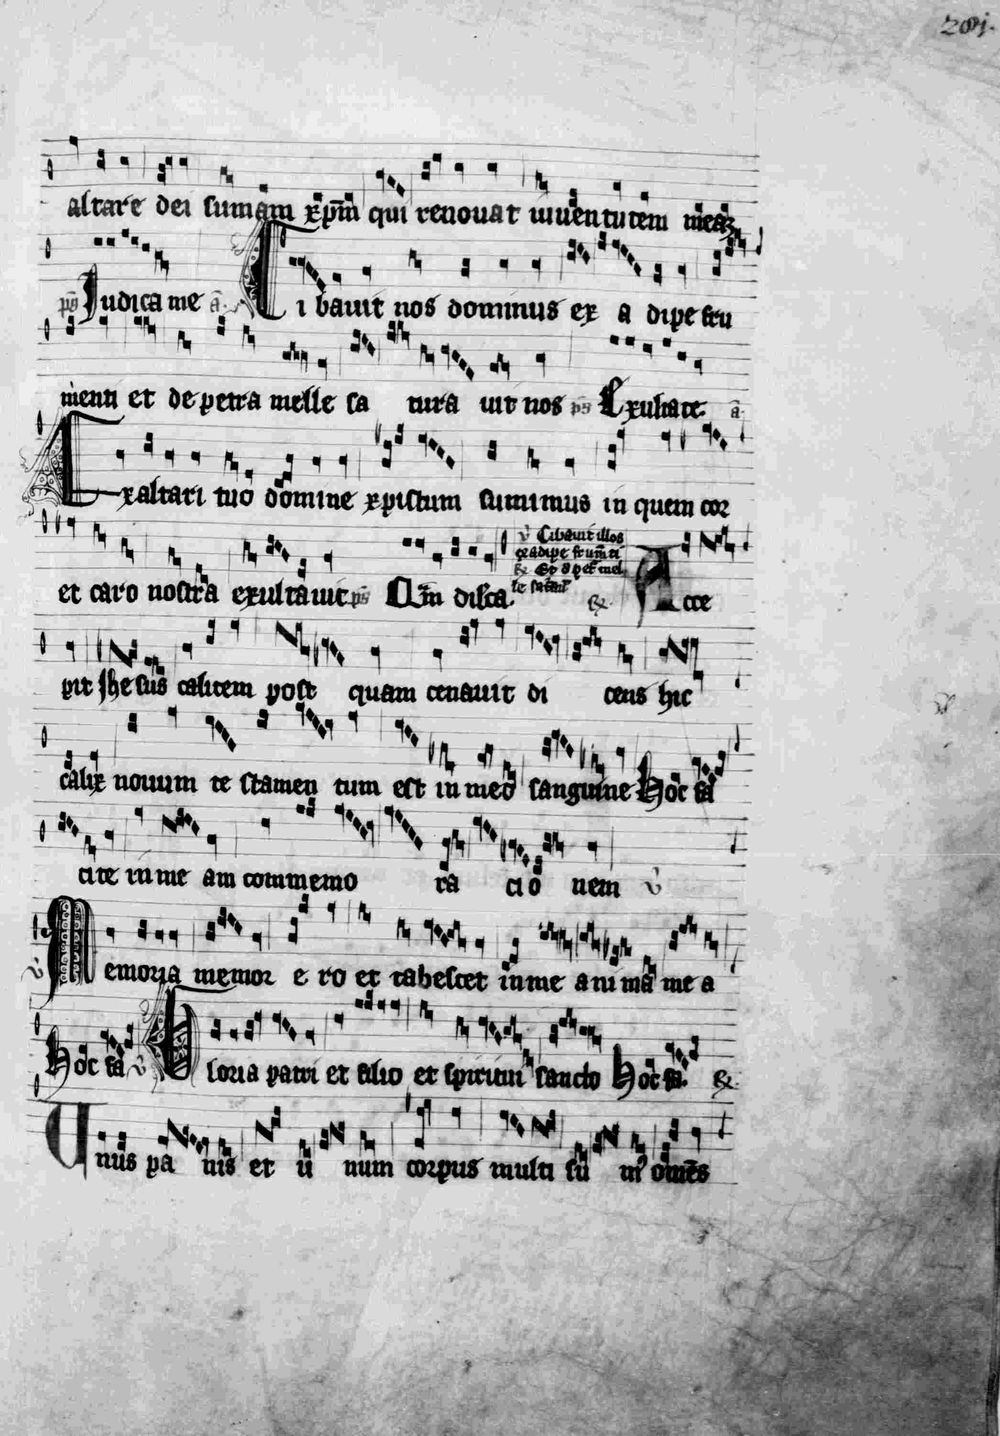 281.
altare dei sumam xp̄m qui renouat iuuentutem meaꝫ
ps Judica me ā. Cibauit nos dominus ex adipe fru
menti et de petra melle satura uit nos ps Exultate. ā.
Ex altari tuo domine xpistum sumimus in quem cor
et caro nostra exultauit ps Qm̄ dilcā.
v Cibauit illos
ex adipe frum̄ti
Acce
pit Jhesus calicem post quam cenauit di cens hic
calix nouum te stamen tum est in meo sanguine Hoc fa
cite in me am commemo ra cio nem v
v Memoria memor e ro et tabescet in me a ni ma me a
Hoc fa v Gloria patri et filio et spiritui sancto Hoc fa. ℟
Unus pa nis et u num corpus multi su mꝰ om̄es